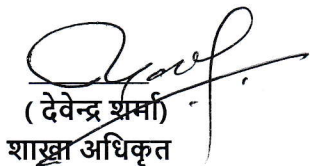 ( देवेन्द्र शर्मा)
शाखा अधिकृत